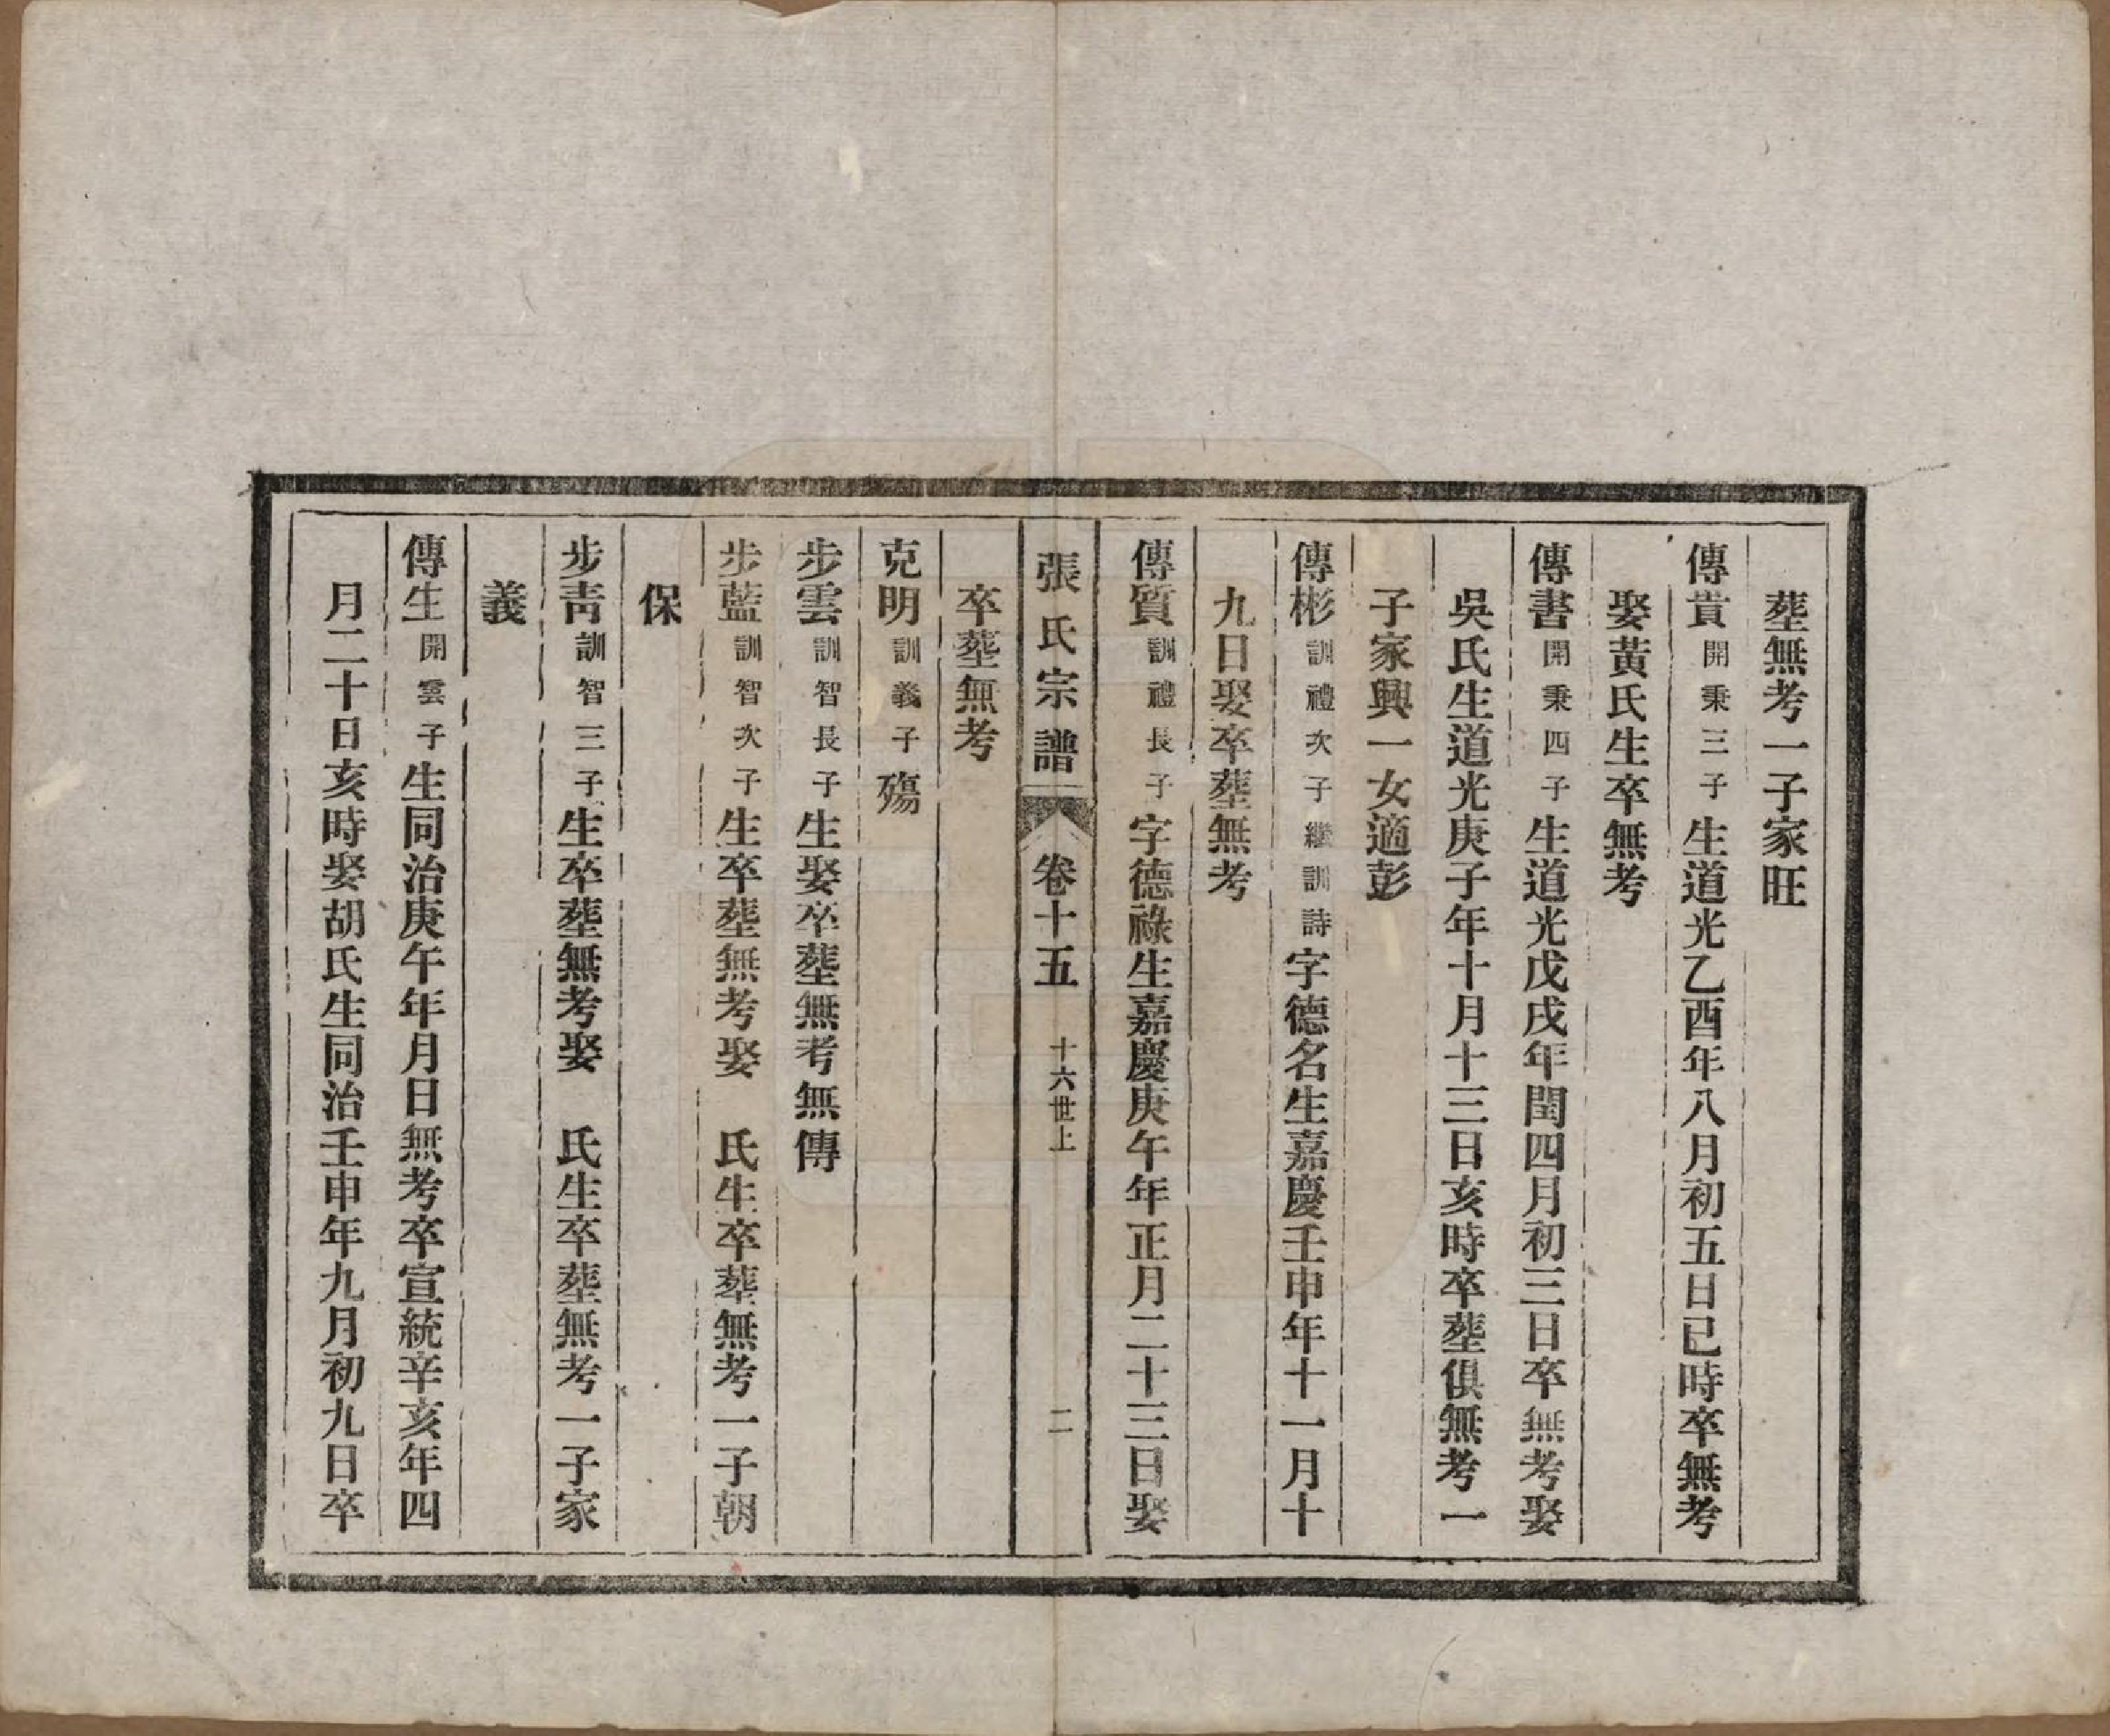 葬無考一子家旺
傳貲開秉三子生道光乙酉年八月初五日巳時卒無考
娶黃氏生卒無考
傳書開秉四子生道光戊戌年閏四月初三日卒無考娶
吳氏生道光庚子年十月十三日亥時卒葬俱無考一
子家興一女適彭
傳彬訓禮次子繼訓詩字德名生嘉慶壬申年十一月十
九日娶卒葬無考
傳質訓禮長子字德祿生嘉慶庚午年正月二十三日娶
張氏宗譜 卷十五 十六世上 二
卒葬無考
克明訓義子殤
步雲訓智長子生娶卒葬無考無傳
步藍訓智次子生卒葬無考娶 氏生卒葬無考一子朝
保
步青訓智三子生卒葬無考娶 氏生卒葬無考一子家
義
傳生開雲子生同治庚午年月日無考卒宣統辛亥年四
月二十日亥時娶胡氏生同治壬申年九月初九日卒